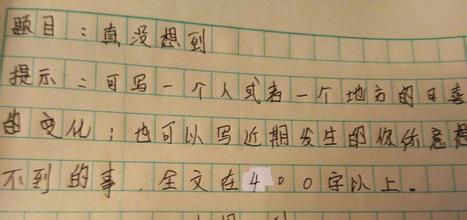 题目：真没想到
提示：可写一个人或者一个地方的可喜
的变化；也可以写近期发生的使你意想
不到的事，全文在400字以上。